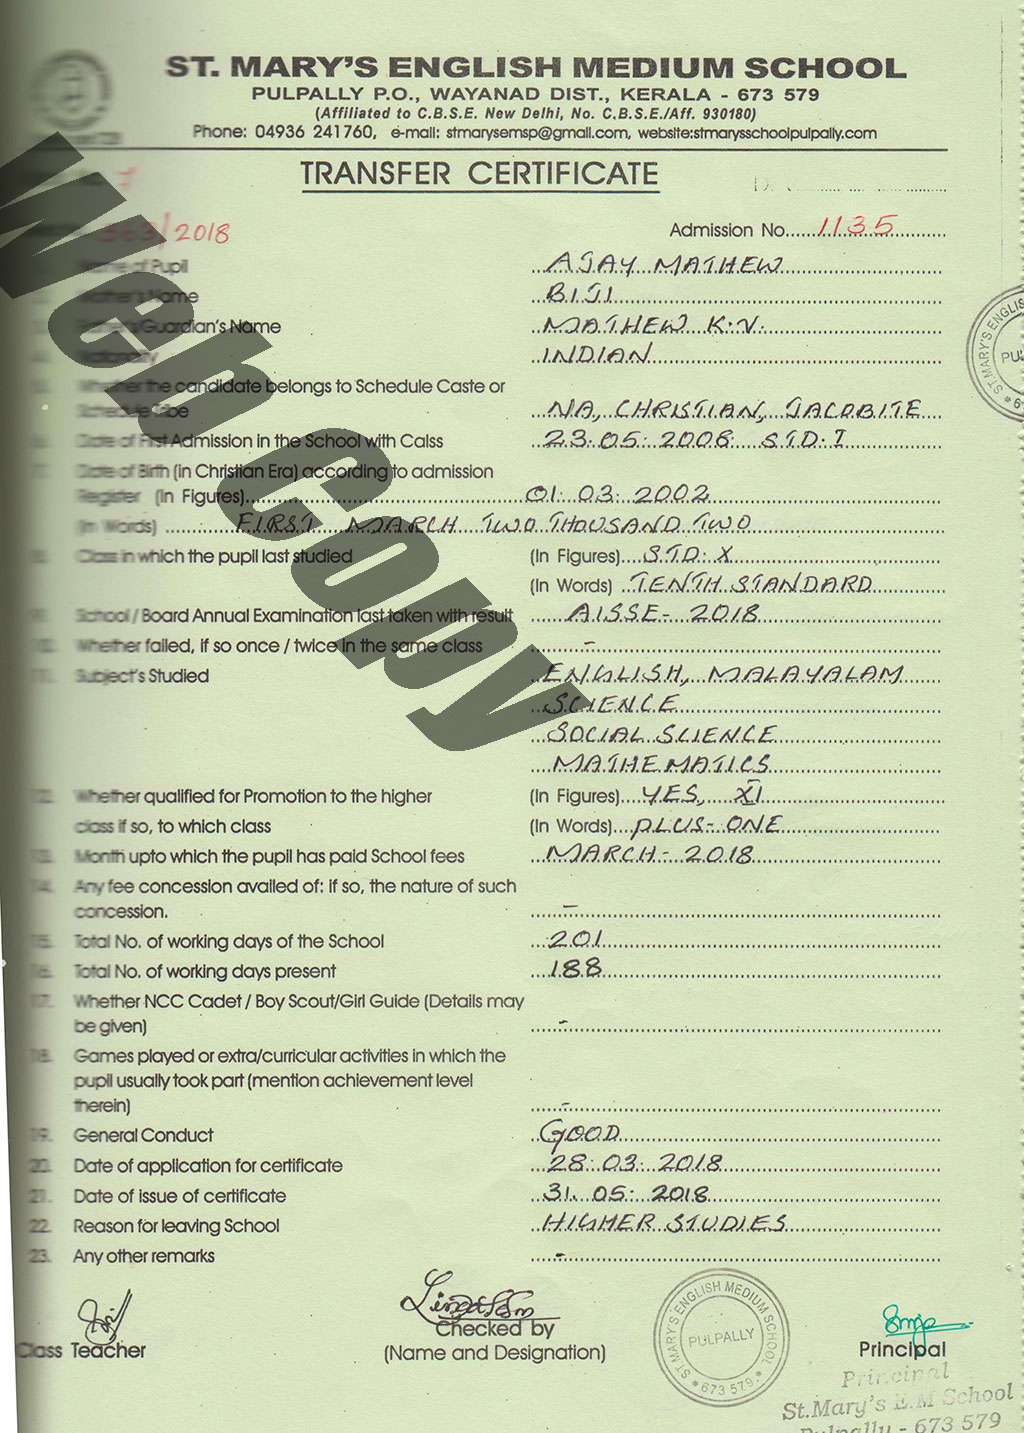 ST. MARY'S ENGLISH MEDIUM SCHOOL
PULPALLY P.O., WAYANAD DIST., KERALA - 673 579
(Affiliated to C.B.S.E. New Delhi, No. C.B.S.E./Aff. 930180)
Phone: 04936 241760, e-mail: stmarysemsp@gmail.com, website:stmarysschoolpulpally.com
TRANSFER CERTIFICATE
7
363/2018 Admission No. 1135
Name of Pupil AJAY MATHEW
Mother's Name BIJI
Father's/Guardian's Name MATHEW K.V.
Nationality INDIAN
Whether the candidate belongs to Schedule Caste or
Schedule Tribe NA, CHRISTIAN, JACOBITE
6. Date of First Admission in the School with Calss 23.05.2006 STD.I
7. Date of Birth (in Christian Era) according to admission
Register (In Figures) 01.03.2002
(In Words) FIRST MARCH TWO THOUSAND TWO
8. Class in which the pupil last studied (In Figures) STD.X
(In Words) TENTH STANDARD
9. School / Board Annual Examination last taken with result AISSE-2018
10. Whether failed, if so once / twice in the same class -
11. Subject's Studied ENGLISH, MALAYALAM
SCIENCE
SOCIAL SCIENCE
MATHEMATICS
12. Whether qualified for Promotion to the higher (In Figures) YES, XI
class if so, to which class (In Words) PLUS-ONE
13. Month upto which the pupil has paid School fees MARCH-2018
14. Any fee concession availed of: if so, the nature of such
concession. -
15. Total No. of working days of the School 201
16. Total No. of working days present 188
17. Whether NCC Cadet / Boy Scout/Girl Guide (Details may
be given) -
18. Games played or extra/curricular activities in which the
pupil usually took part (mention achievement level
therein) -
19. General Conduct GOOD
20. Date of application for certificate 28.03.2018
21. Date of issue of certificate 31.05.2018
22. Reason for leaving School HIGHER STUDIES
23. Any other remarks -
Class Teacher
Checked by
(Name and Designation)
ST MARY'S ENGLISH MEDIUM SCHOOL
PULPALLY
* 673 579 *
Principal
Principal
St.Mary's E.M School
Pulpally - 673 579
ST MARY'S ENGLISH
Web Copy